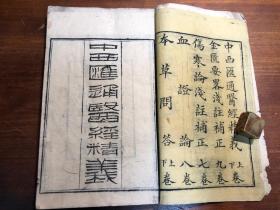 中西匯通醫經精義上下卷
金匱要畧淺註補正九卷
傷寒論淺註補正七卷
血證論八卷
本草問答上下卷
中西匯通醫經精義